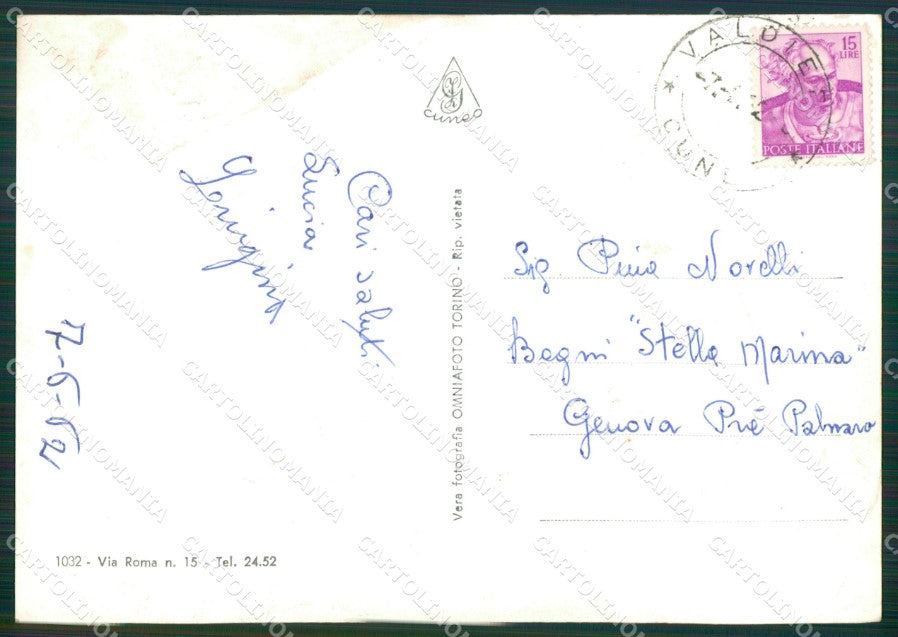 Cari saluti
Lucia
Luigina
7-6-62
CUNEO
VALDIE
CUNE
15
LIRE
POSTE ITALIANE
Vera fotografia OMNIAFOTO TORINO - Rip. vietata
Sig. Pinia Novelli
Bagni "Stella Marina"
Genova Prà Palmaro
1032 - Via Roma n. 15 - Tel. 24.52
CARTOLINOMANIA